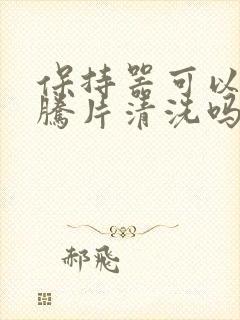 保持器可以
腾片清洗吗
郝飛